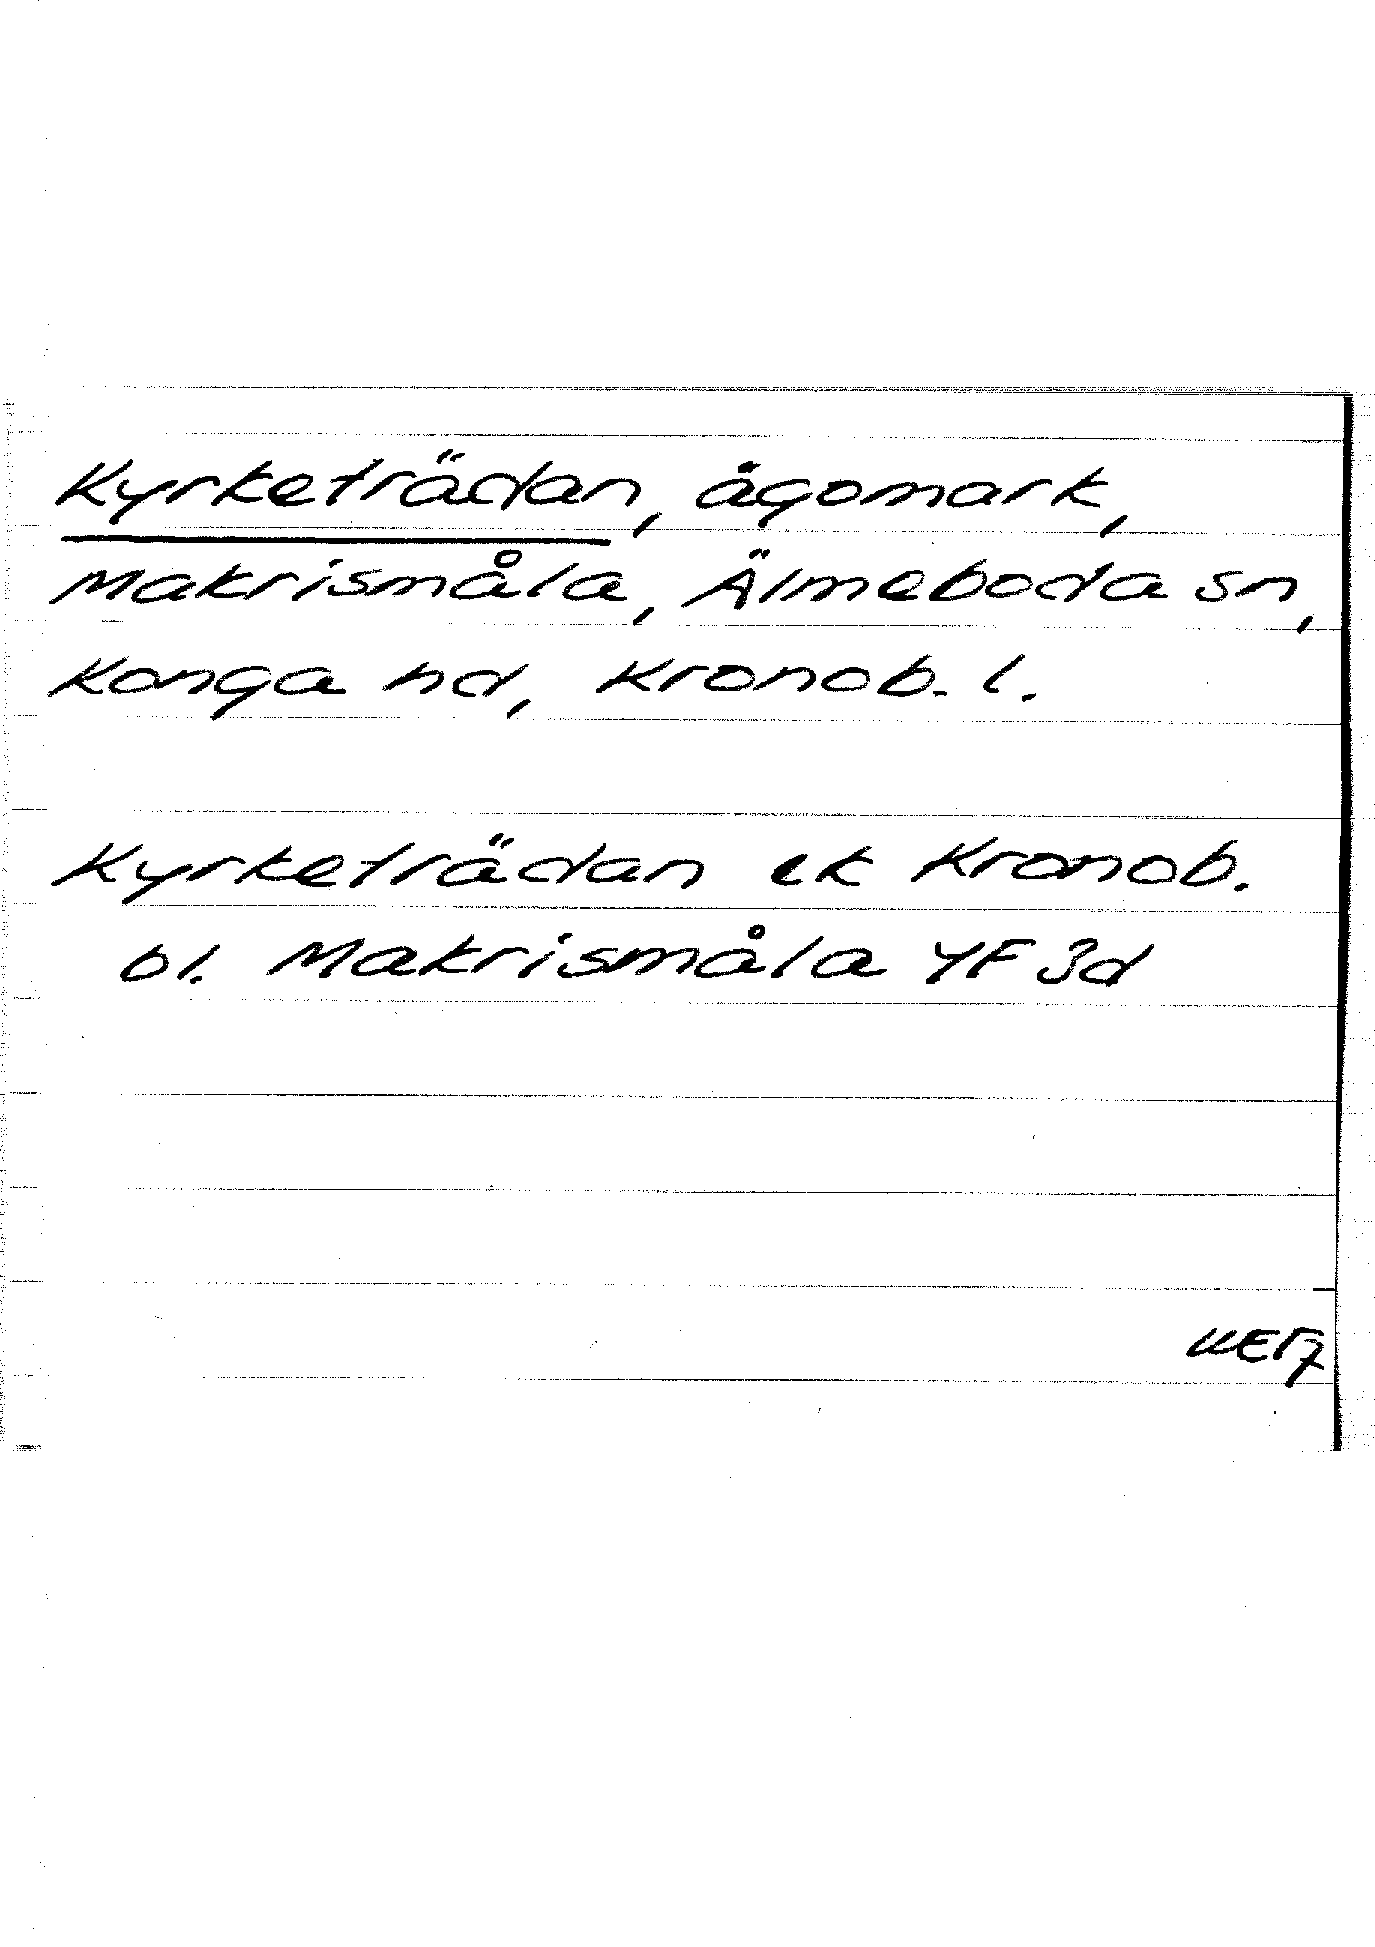 Kyrketrädan, ägomark,
Makrismåla, Älmeboda sn,
Konga hd, Kronob. l.
Kyrketrädan ek Kronob.
bl. Makrismåla 4F 3d